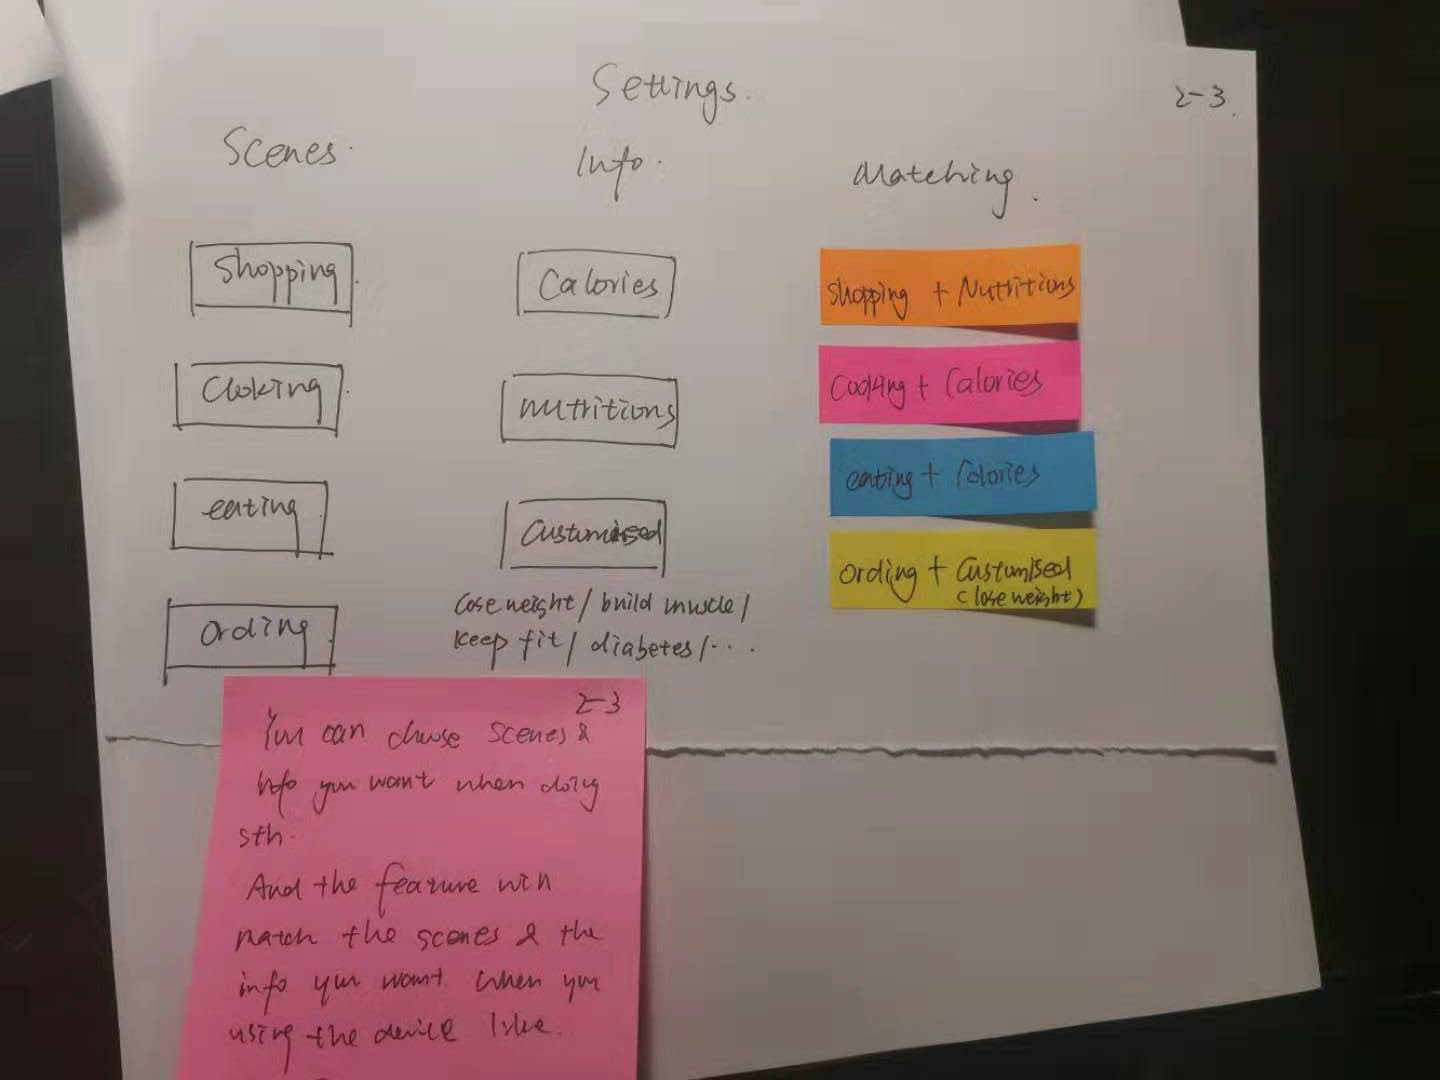 Settings.
2-3.
Scenes.
Info.
Matching.
Shopping
Calories
Shopping + Nutritions
Cooking
Nutritions
Cooking + Calories
eating
Customised
eating + Calories
Ording
Lose weight / build muscle /
keep fit / diabetes / ...
Ording + Customised
(lose weight)
2-3
You can choose scenes &
info you want when doing
sth.
And the feature will
match the scenes & the
info you want when you
using the device like.